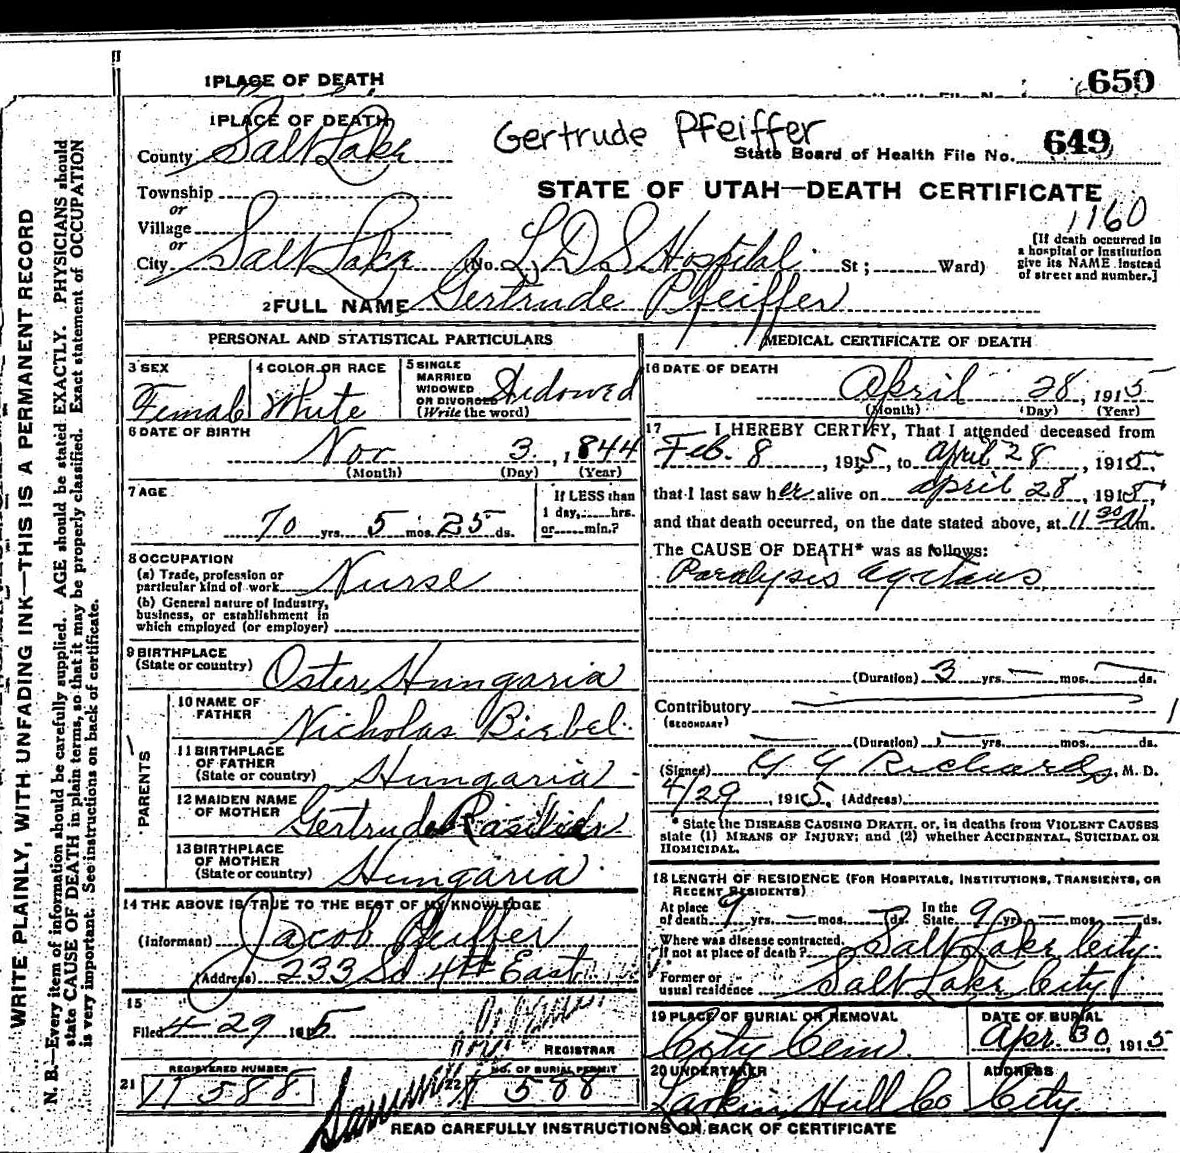 1 PLACE OF DEATH
650
1 PLACE OF DEATH
Gertrude Pfeiffer
County Salt Lake
State Board of Health File No. 649
Township
or
Village
or
City Salt Lake
STATE OF UTAH—DEATH CERTIFICATE
1160
(No. L D S Hospital St ; Ward)
[If death occurred in
a hospital or institution
give its NAME instead
of street and number.]
2 FULL NAME Gertrude Pfeiffer
PERSONAL AND STATISTICAL PARTICULARS
3 SEX
Female
4 COLOR OR RACE
White
5 SINGLE
MARRIED
WIDOWED
OR DIVORCED
(Write the word)
Widowed
6 DATE OF BIRTH
Nov 3, 1844
(Month) (Day) (Year)
7 AGE
70 yrs. 5 mos. 25 ds.
If LESS than
1 day, hrs.
or min.?
8 OCCUPATION
(a) Trade, profession or
particular kind of work Nurse
(b) General nature of industry,
business, or establishment in
which employed (or employer)
9 BIRTHPLACE
(State or country) Oster Hungaria
PARENTS
10 NAME OF
FATHER Nicholas Biebel
11 BIRTHPLACE
OF FATHER
(State or country) Hungaria
12 MAIDEN NAME
OF MOTHER Gertrude
13 BIRTHPLACE
OF MOTHER
(State or country) Hungaria
14 THE ABOVE IS TRUE TO THE BEST OF MY KNOWLEDGE
(Informant) Jacob Pfeiffer
(Address) 233 So 4th East
15
Filed 4-29 1915
REGISTRAR
21 REGISTERED NUMBER
588
22 NO. OF BURIAL PERMIT
588
MEDICAL CERTIFICATE OF DEATH
16 DATE OF DEATH
April 28, 1915
(Month) (Day) (Year)
17 I HEREBY CERTIFY, That I attended deceased from
Feb. 8, 1915, to april 28, 1915,
that I last saw her alive on april 28, 1915,
and that death occurred, on the date stated above, at 11 30 m.
The CAUSE OF DEATH* was as follows:
Paralysis agitans
(Duration) 3 yrs. — mos. — ds.
Contributory
(SECONDARY)
(Duration) yrs. mos. ds.
(Signed) G G Richards, M. D.
4/29, 1915. (Address)
* State the DISEASE CAUSING DEATH, or, in deaths from VIOLENT CAUSES
state (1) MEANS OF INJURY; and (2) whether ACCIDENTAL, SUICIDAL OR
HOMICIDAL.
18 LENGTH OF RESIDENCE (FOR HOSPITALS, INSTITUTIONS, TRANSIENTS, OR
RECENT RESIDENTS)
At place
of death 9 yrs. — mos. — ds. In the
State 9 yrs. — mos. — ds.
Where was disease contracted,
If not at place of death? Salt Lake City.
Former or
usual residence Salt Lake City
19 PLACE OF BURIAL OR REMOVAL
City Cem.
DATE OF BURIAL
Apr. 30, 1915
20 UNDERTAKER
Larkin Hull Co
ADDRESS
City
READ CAREFULLY INSTRUCTIONS ON BACK OF CERTIFICATE
WRITE PLAINLY, WITH UNFADING INK—THIS IS A PERMANENT RECORD
N. B.—Every item of information should be carefully supplied. AGE should be stated EXACTLY. PHYSICIANS should
state CAUSE OF DEATH in plain terms, so that it may be properly classified. Exact statement of OCCUPATION
is very important. See instructions on back of certificate.